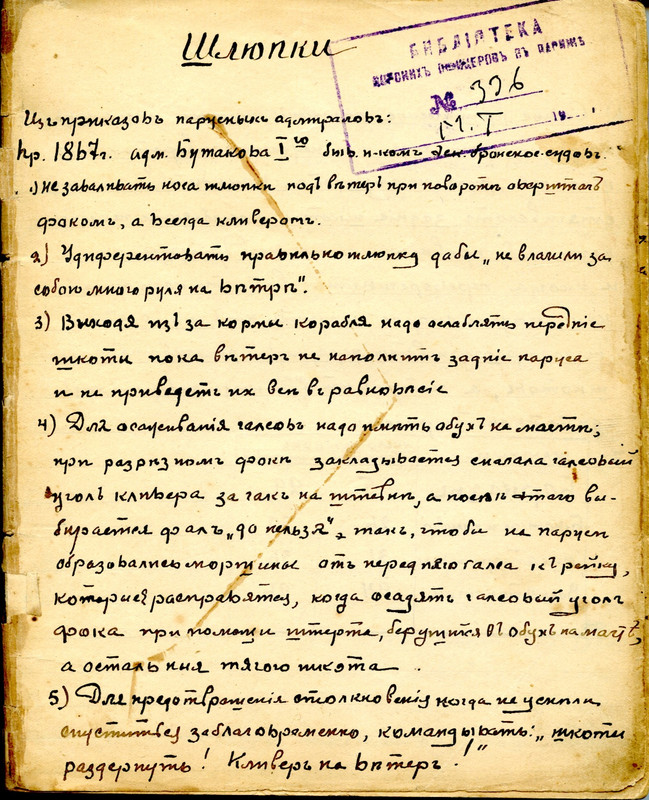 Шлюпки
БИБЛІОТЕКА
МОРСКИХЪ ОФИЦЕРОВЪ ВЪ ПАРИЖѢ
№ 336
19
Изъ приказовъ парусныхъ адмираловъ:
Пр. 1867г. адм. Бутакова I го бывш. н-комъ
1) Не заваливать носа шлюпки подъ вѣтеръ при поворотѣ оверштагъ
фокомъ, а всегда кливеромъ.
2) Удиферентовать правильно шлюпку дабы „не влачили за
собою много руля на вѣтрѣ".
3) Выходя изъ за кормы корабля надо ослаблять передніе
шкоты пока вѣтеръ не наполнитъ задніе паруса
и не приведетъ ихъ всѣ въ равновѣсіе
4) Для осаживанія галсовъ надо имѣть обухъ на мачтѣ;
при разрѣзномъ фокѣ закладывается сначала галсовый
уголъ кливера за гакъ на штевнѣ, а послѣ этого вы-
бирается фалъ „до нельзя", такъ, чтобы на парусѣ
образовались морщины отъ передняго галса къ рейку,
которыя расправятся, когда осадятъ галсовый уголъ
фока при помощи штерта, берущійся въ обухъ на мачтѣ,
а остальныя тягою шкота.
5) Для предотвращенія столкновенія когда не успѣли
спуститься заблаговременно, командывать: „шкоты
раздернуть! Кливеръ на вѣтеръ!"